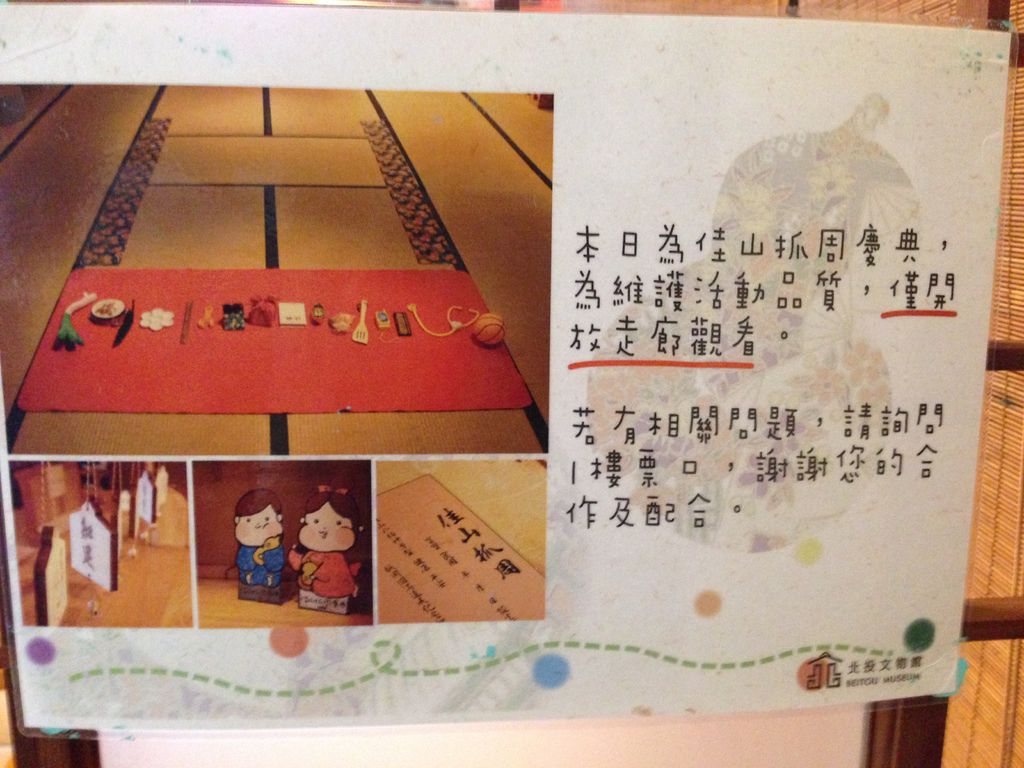 本日為佳山抓周慶典，
為維護活動品質，僅開
放走廊觀看。
若有相關問題，請詢問
1樓票口，謝謝您的合
作及配合。
佳山抓周
北投文物館
BEITOU MUSEUM